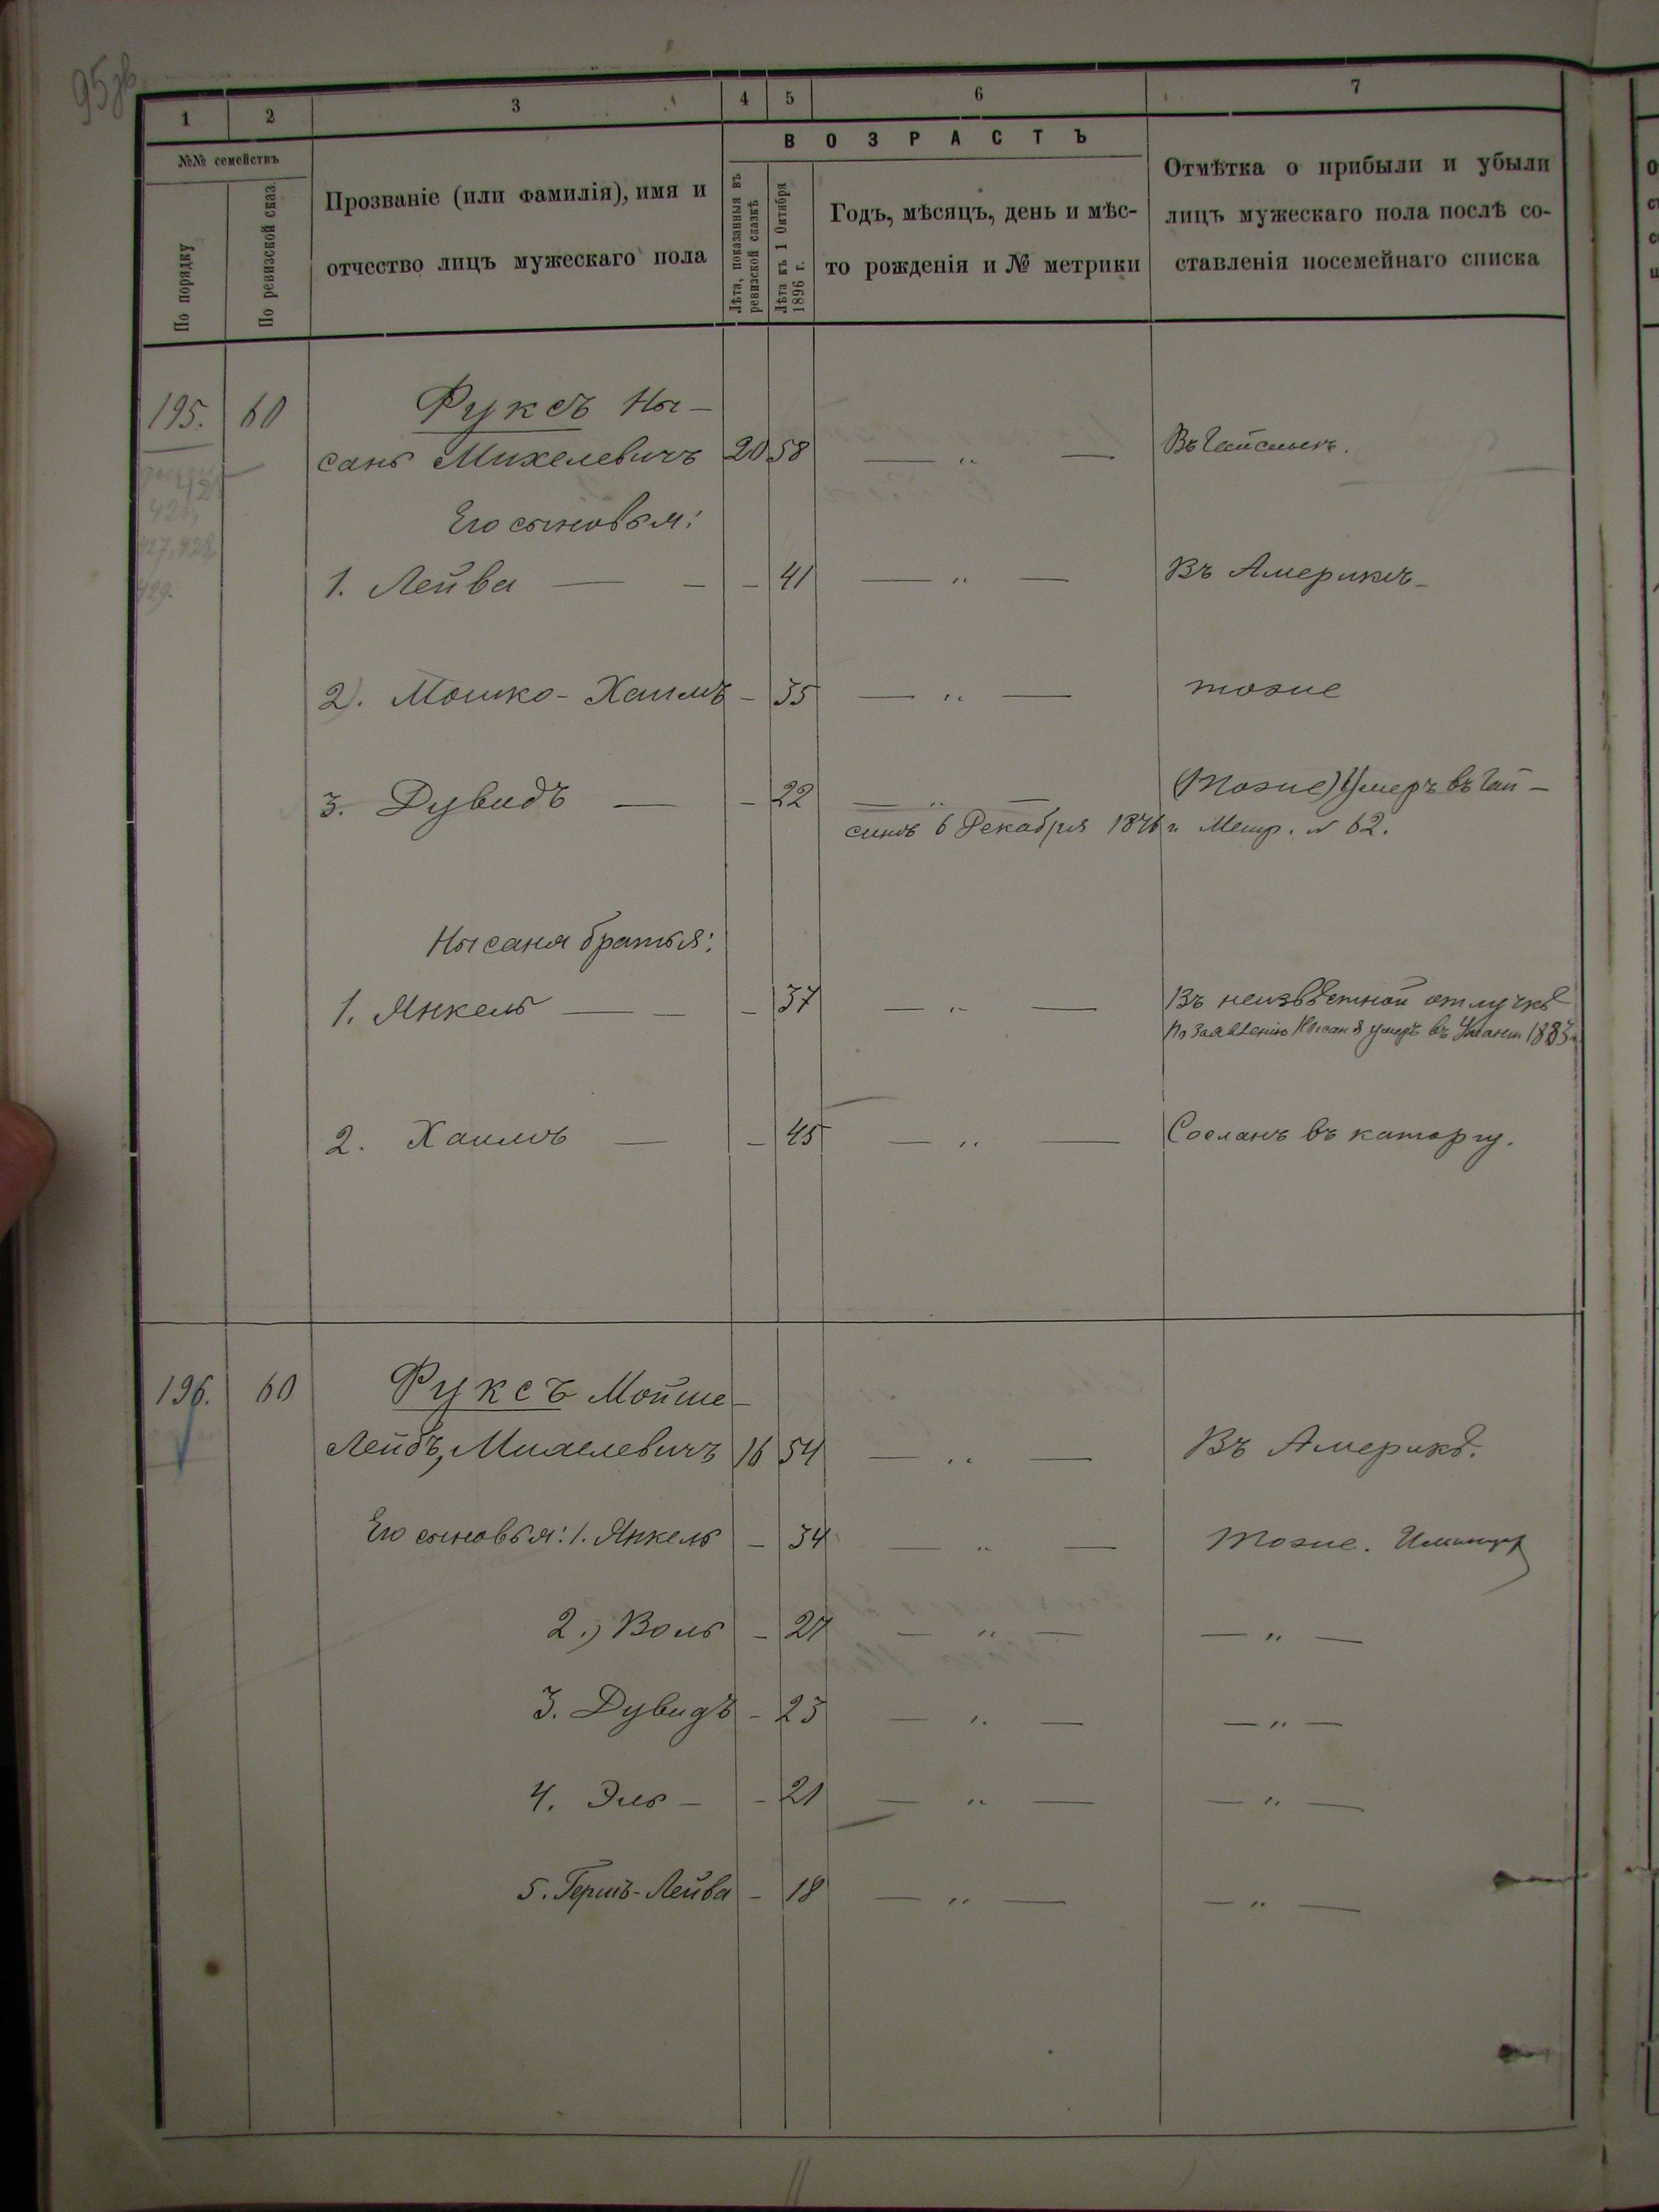 95 об
1 2 3 4 5 6 7
№№ семействъ
По порядку
По ревизской сказ.
Прозваніе (или фамилія), имя и
отчество лицъ мужескаго пола
ВОЗРАСТЪ
Лѣта, показанныя въ
ревизской сказкѣ
Лѣта къ 1 Октября
1896 г.
Годъ, мѣсяцъ, день и мѣс-
то рожденія и № метрики
Отмѣтка о прибыли и убыли
лицъ мужескаго пола послѣ со-
ставленія посемейнаго списка
195. 60 Руксъ Ны-
санъ Михелевичъ 20 58 — „ — Въ Гайсинѣ.
426,
427, 428
429.
Его сыновья:
1. Лейба — — – 41 — „ — Въ Америкѣ
2). Мошко-Хаимъ – 35 — „ — тоже
3. Дувидъ — – 22 — „ — (Тоже) Умеръ въ Гай-
синѣ 6 Декабря 1876 г. Метр. № 62.
Нысана братья:
1. Янкель — — – 37 — „ — Въ неизвѣстной отлучкѣ
По заявленію Нысана умеръ въ Умани 1883 г.
2. Хаимъ — – 45 — „ — Сосланъ въ каторгу.
196. 60 Руксъ Мойше-
Лейбъ, Михелевичъ 16 54 — „ — Въ Америкѣ.
Его сыновья: 1. Янкель – 34 — „ — Тоже.
2.) Воль – 27 — „ — — „ —
3. Дувидъ – 23 — „ — — „ —
4. Эль – – 21 — „ — — „ —
5. Гершъ-Лейба – 18 — „ — — „ —